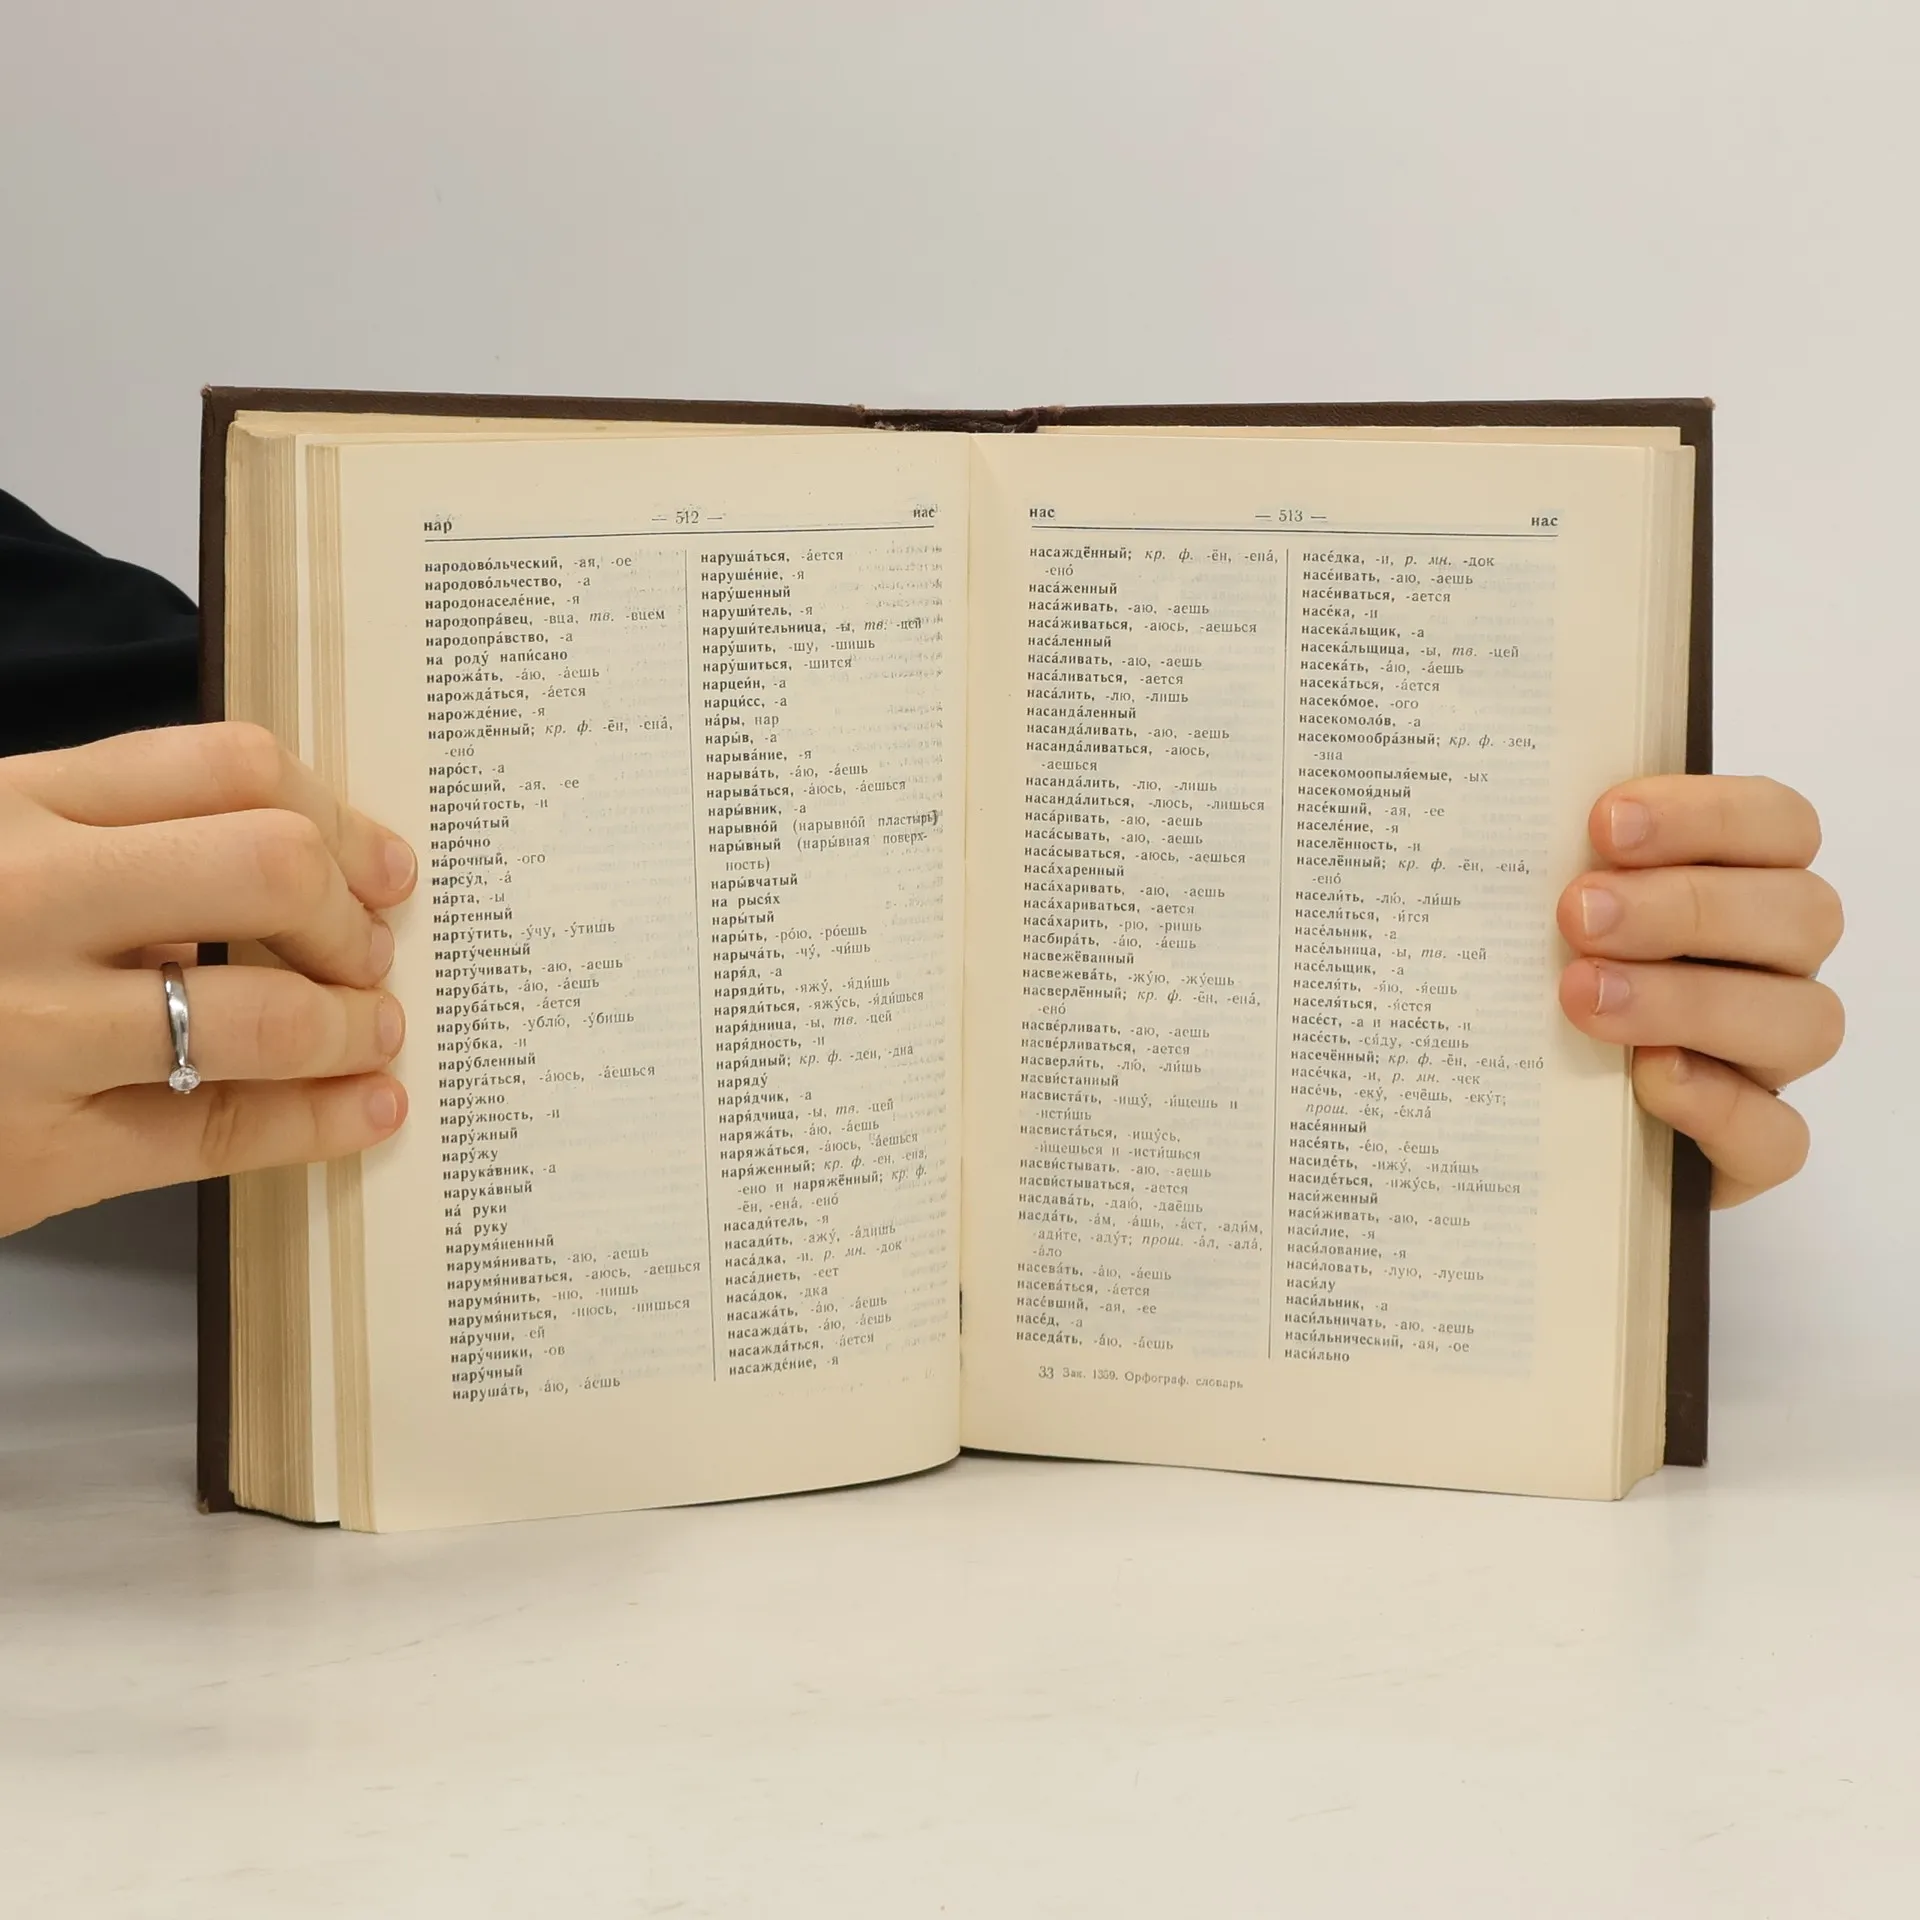 нар — 512 — нас
народово́льческий, -ая, -ое
народово́льчество, -а
народонаселе́ние, -я
народопра́вец, -вца, тв. -вцем
народопра́вство, -а
на роду́ напи́сано
нарожа́ть, -а́ю, -а́ешь
нарожда́ться, -а́ется
нарожде́ние, -я
нарождённый; кр. ф. -ён, -ена́,
-ено́
наро́ст, -а
наро́сший, -ая, -ее
нарочи́тость, -и
нарочи́тый
наро́чно
на́рочный, -ого
нарсу́д, -а́
на́рта, -ы
на́ртенный
нарту́тить, -у́чу, -у́тишь
нарту́ченный
нарту́чивать, -аю, -аешь
наруба́ть, -а́ю, -а́ешь
наруба́ться, -а́ется
наруби́ть, -ублю́, -у́бишь
нару́бка, -и
нару́бленный
наруга́ться, -а́юсь, -а́ешься
нару́жно
нару́жность, -и
нару́жный
нару́жу
нарука́вник, -а
нарука́вный
на́ руки
на́ руку
нарумя́ненный
нарумя́нивать, -аю, -аешь
нарумя́ниваться, -аюсь, -аешься
нарумя́нить, -ню, -нишь
нарумя́ниться, -нюсь, -нишься
на́ручни, -ей
нару́чники, -ов
нару́чный
наруша́ть, -а́ю, -а́ешь
наруша́ться, -а́ется
наруше́ние, -я
нару́шенный
наруши́тель, -я
наруши́тельница, -ы, тв. -цей
нару́шить, -шу, -шишь
нару́шиться, -шится
нарцеи́н, -а
нарци́сс, -а
на́ры, нар
нары́в, -а
нарыва́ние, -я
нарыва́ть, -а́ю, -а́ешь
нарыва́ться, -а́юсь, -а́ешься
нары́вник, -а
нарывно́й (нарывно́й пластырь)
нары́вный (нары́вная поверх-
ность)
нары́вчатый
на рыся́х
нары́тый
нары́ть, -ро́ю, -ро́ешь
нарыча́ть, -чу́, -чи́шь
наря́д, -а
наряди́ть, -яжу́, -я́ди́шь
наряди́ться, -яжу́сь, -я́ди́шься
наря́дница, -ы, тв. -цей
наря́дность, -и
наря́дный; кр. ф. -ден, -дна́
наряду́
наря́дчик, -а
наря́дчица, -ы, тв. -цей
наряжа́ть, -а́ю, -а́ешь
наряжа́ться, -а́юсь, -а́ешься
наря́женный; кр. ф. -ен, -ена,
-ено и наряжённый; кр. ф.
-ён, -ена́, -ено́
насади́тель, -я
насади́ть, -ажу́, -а́дишь
наса́дка, -и, р. мн. -док
наса́днеть, -еет
наса́док, -дка
насажа́ть, -а́ю, -а́ешь
насажда́ть, -а́ю, -а́ешь
насажда́ться, -а́ется
насажде́ние, -я
нас — 513 — нас
насаждённый; кр. ф. -ён, -ена́,
-ено́
наса́женный
наса́живать, -аю, -аешь
наса́живаться, -аюсь, -аешься
наса́ленный
наса́ливать, -аю, -аешь
наса́ливаться, -ается
наса́лить, -лю, -лишь
насанда́ленный
насанда́ливать, -аю, -аешь
насанда́ливаться, -аюсь,
-аешься
насанда́лить, -лю, -лишь
насанда́литься, -люсь, -лишься
наса́ривать, -аю, -аешь
наса́сывать, -аю, -аешь
наса́сываться, -аюсь, -аешься
наса́харенный
наса́харивать, -аю, -аешь
наса́хариваться, -ается
наса́харить, -рю, -ришь
насбира́ть, -а́ю, -а́ешь
насвежёванный
насвежева́ть, -жу́ю, -жу́ешь
насверлённый; кр. ф. -ён, -ена́,
-ено́
насве́рливать, -аю, -аешь
насве́рливаться, -ается
насверли́ть, -лю́, -ли́шь
насви́станный
насвиста́ть, -ищу́, -и́щешь и
-исти́шь
насвиста́ться, -ищу́сь,
-и́щешься и -исти́шься
насви́стывать, -аю, -аешь
насви́стываться, -ается
насдава́ть, -даю́, -даёшь
насда́ть, -а́м, -а́шь, -а́ст, -ади́м,
-ади́те, -аду́т; прош. -а́л, -ала́,
-а́ло
насева́ть, -а́ю, -а́ешь
насева́ться, -а́ется
насе́вший, -ая, -ее
насе́д, -а
наседа́ть, -а́ю, -а́ешь
насе́дка, -и, р. мн. -док
насе́ивать, -аю, -аешь
насе́иваться, -ается
насе́ка, -и
насека́льщик, -а
насека́льщица, -ы, тв. -цей
насека́ть, -а́ю, -а́ешь
насека́ться, -а́ется
насеко́мое, -ого
насекомоло́в, -а
насекомообра́зный; кр. ф. -зен,
-зна
насекомоопыля́емые, -ых
насекомоя́дный
насе́кший, -ая, -ее
населе́ние, -я
населённость, -и
населённый; кр. ф. -ён, -ена́,
-ено́
насели́ть, -лю́, -ли́шь
насели́ться, -и́тся
насе́льник, -а
насе́льница, -ы, тв. -цей
насе́льщик, -а
населя́ть, -я́ю, -я́ешь
населя́ться, -я́ется
насе́ст, -а и насе́сть, -и
насе́сть, -ся́ду, -ся́дешь
насечённый; кр. ф. -ён, -ена́, -ено́
насе́чка, -и, р. мн. -чек
насе́чь, -еку́, -ечёшь, -еку́т;
прош. -е́к, -екла́
насе́янный
насе́ять, -е́ю, -е́ешь
насиде́ть, -ижу́, -иди́шь
насиде́ться, -ижу́сь, -иди́шься
наси́женный
наси́живать, -аю, -аешь
наси́лие, -я
наси́лование, -я
наси́ловать, -лую, -луешь
наси́лу
наси́льник, -а
наси́льничать, -аю, -аешь
наси́льнический, -ая, -ое
наси́льно
33 Зак. 1359. Орфограф. словарь